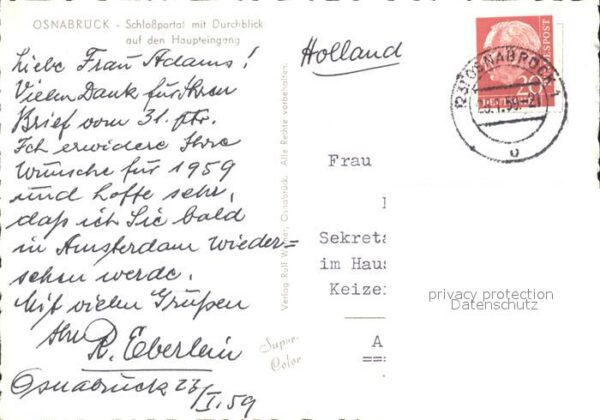 OSNABRÜCK - Schloßportal mit Durchblick
auf den Haupteingang
Liebe Frau Adams!
Vielen Dank für Ihren
Brief vom 31. ptr.
Ich erwidere Ihre
Wünsche für 1959
und hoffe sehr,
daß ich Sie bald
in Amsterdam wieder=
sehen werde.
Mit vielen Grüßen
Ihr
R. Eberlein
Osnabrück 23/I.59
Verlag Rolf Osnabrück. Alle Rechte vorbehalten.
Super-
Color
Holland
(23) OSNABRÜCK 1
.1.59.-21
BUNDESPOST
20
Frau
Sekreta
im Haus
Keizer
A
privacy protection
Datenschutz